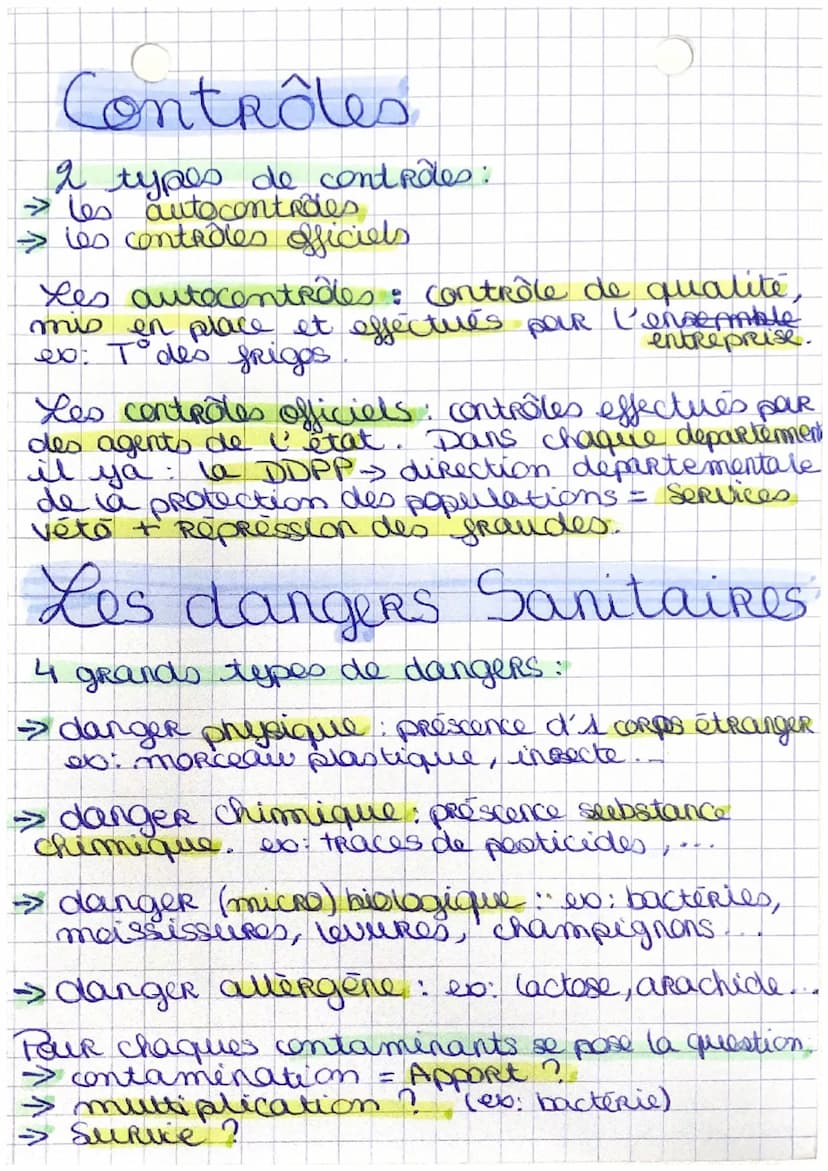 Contrôles
2 types de contrôles :
→ les autocontrôles
→ les contrôles officiels
Les autocontrôles : contrôle de qualité,
mis en place et efféctués par l'ensemble
entreprise.
ex: T° des frigos.
Les contrôles officiels : contrôles effectués par
des agents de l'état. Dans chaque département
il ya : la DDPP → direction départementale
de la protection des populations = Services
vétö + Répréssion des fraudes.
Les dangers Sanitaires
4 grands types de dangers :
→ danger physique : préscence d'1 corps étranger
ex: morceau plastique, insecte...
→ danger chimique : préscence substance
chimique. ex: traces de pesticides, ...
→ danger (micro) biologique : ex: bactéries,
moississures, levures, champignons...
→ danger allèrgène : ex: lactose, arachide...
Pour chaques contaminants se pose la question.
→ contamination = Apport ?
→ multiplication ? (ex: bactérie)
→ Survie ?